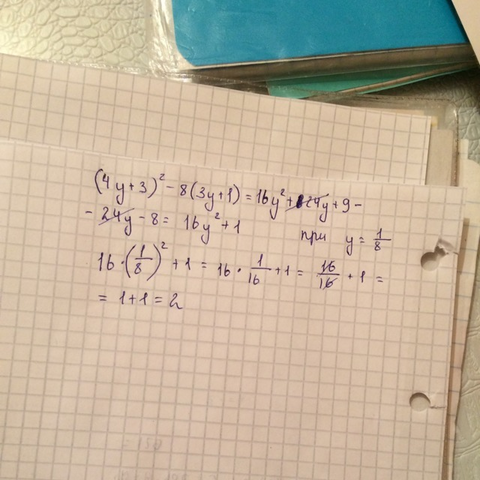 (4y+3)² - 8(3y+1) = 16y² + 24y + 9 -
- 24y - 8 = 16y² + 1 при y = 1/8
16 · (1/8)² + 1 = 16 · 1/16 + 1 = 16/16 + 1 =
= 1 + 1 = 2